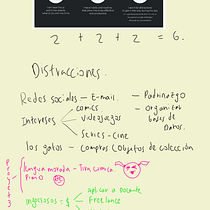 2 + 2 + 2 = 6.
Distracciones.
Redes sociales – E-mail.
→ Padrinazgo
→ Organizar bases de Datos.
Intereses
comics
Videojuegos
Series - cine
los gatos – Compras (Objetos de colección
lengua morada – Tira comica
Ingresos = $
aplicar a Docente
Freelance